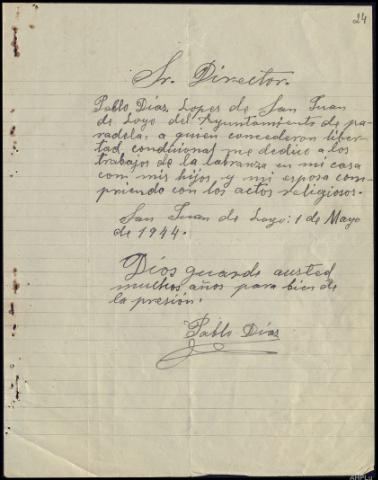 24
Sr. Director.
Pablo Días Lopes de San Juan
de Loyo del Ayuntamiento de pa-
radela: a quien concederon liber-
tad condicional me dedico a los
trabajos de la labranza en mi casa
com mis hijos y mi esposa com-
priendo con los actos religiosos.
San Juan de Loyo: 1 de Mayo
de 1944.
Dios guarde austed
muchos años para bien de
la presión.
Pablo Días
AHPLu